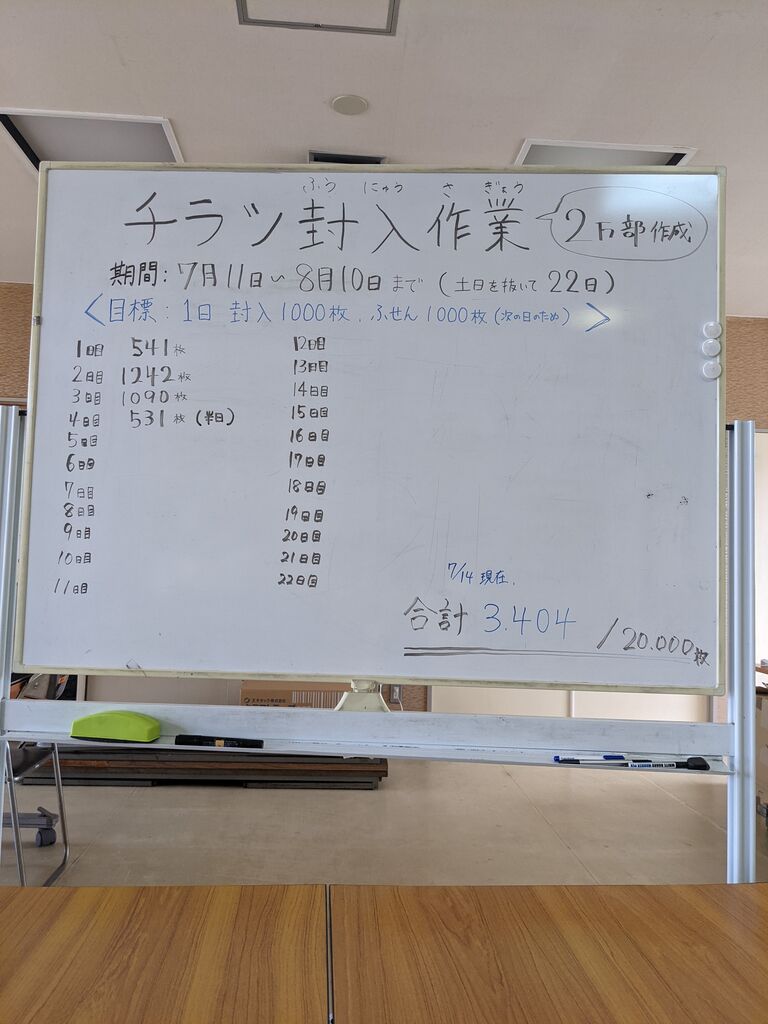 ふうにゅうさぎょう
チラシ封入作業
2万部作成
期間:7月11日〜8月10日まで(土日を抜いて22日)
<目標:1日 封入1000枚、ふせん1000枚(次の日のため)>
1日目 541枚
2日目 1242枚
3日目 1090枚
4日目 531枚(半日)
5日目
6日目
7日目
8日目
9日目
10日目
11日目
12日目
13日目
14日目
15日目
16日目
17日目
18日目
19日目
20日目
21日目
22日目
7/14 現在.
合計 3.404 /20.000枚